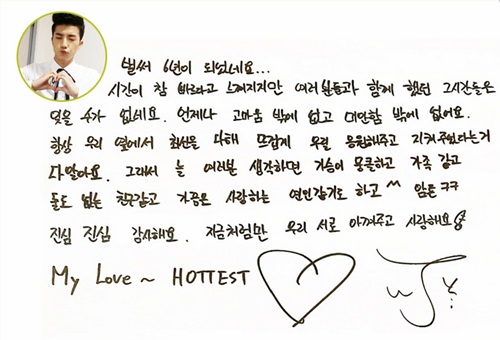 벌써 6년이 되었네요...
시간이 참 빠르다고 느껴지지만 여러분들과 함께 했던 그시간들은
잊을 수가 없네요. 언제나 고마움 밖에 없고 미안함 밖에 없어요.
항상 우리 옆에서 최선을 다해 뜨겁게 우릴 응원해주고 지켜주었다는거
다알아요. 그래서 늘 여러분 생각하면 가슴이 뭉클하고 가족 같고
둘도 없는 친구같고 가끔은 사랑하는 연인같기도 하고^^ 암튼 ㅋㅋ
진심 진심 감사해요. 지금처럼만 우리 서로 아껴주고 사랑해요
My Love ~ HOTTEST